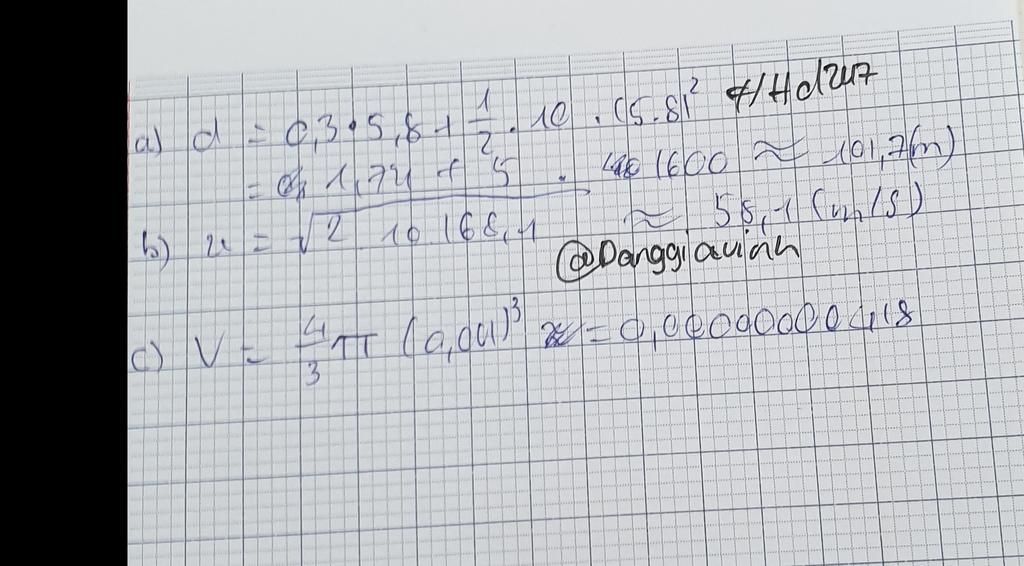 a) d = 0,3 . 5,8 + 1/2 . 10 . (5.8)² #Hd247
= 1,74 + 5 . 1600 ≈ 101,7(m)
b) u = √2 10 168,1 ≈ 58,1 (m/s)
@Danggiavinh
c) V = 4/3 π (0,001)³ = 0,00000000418